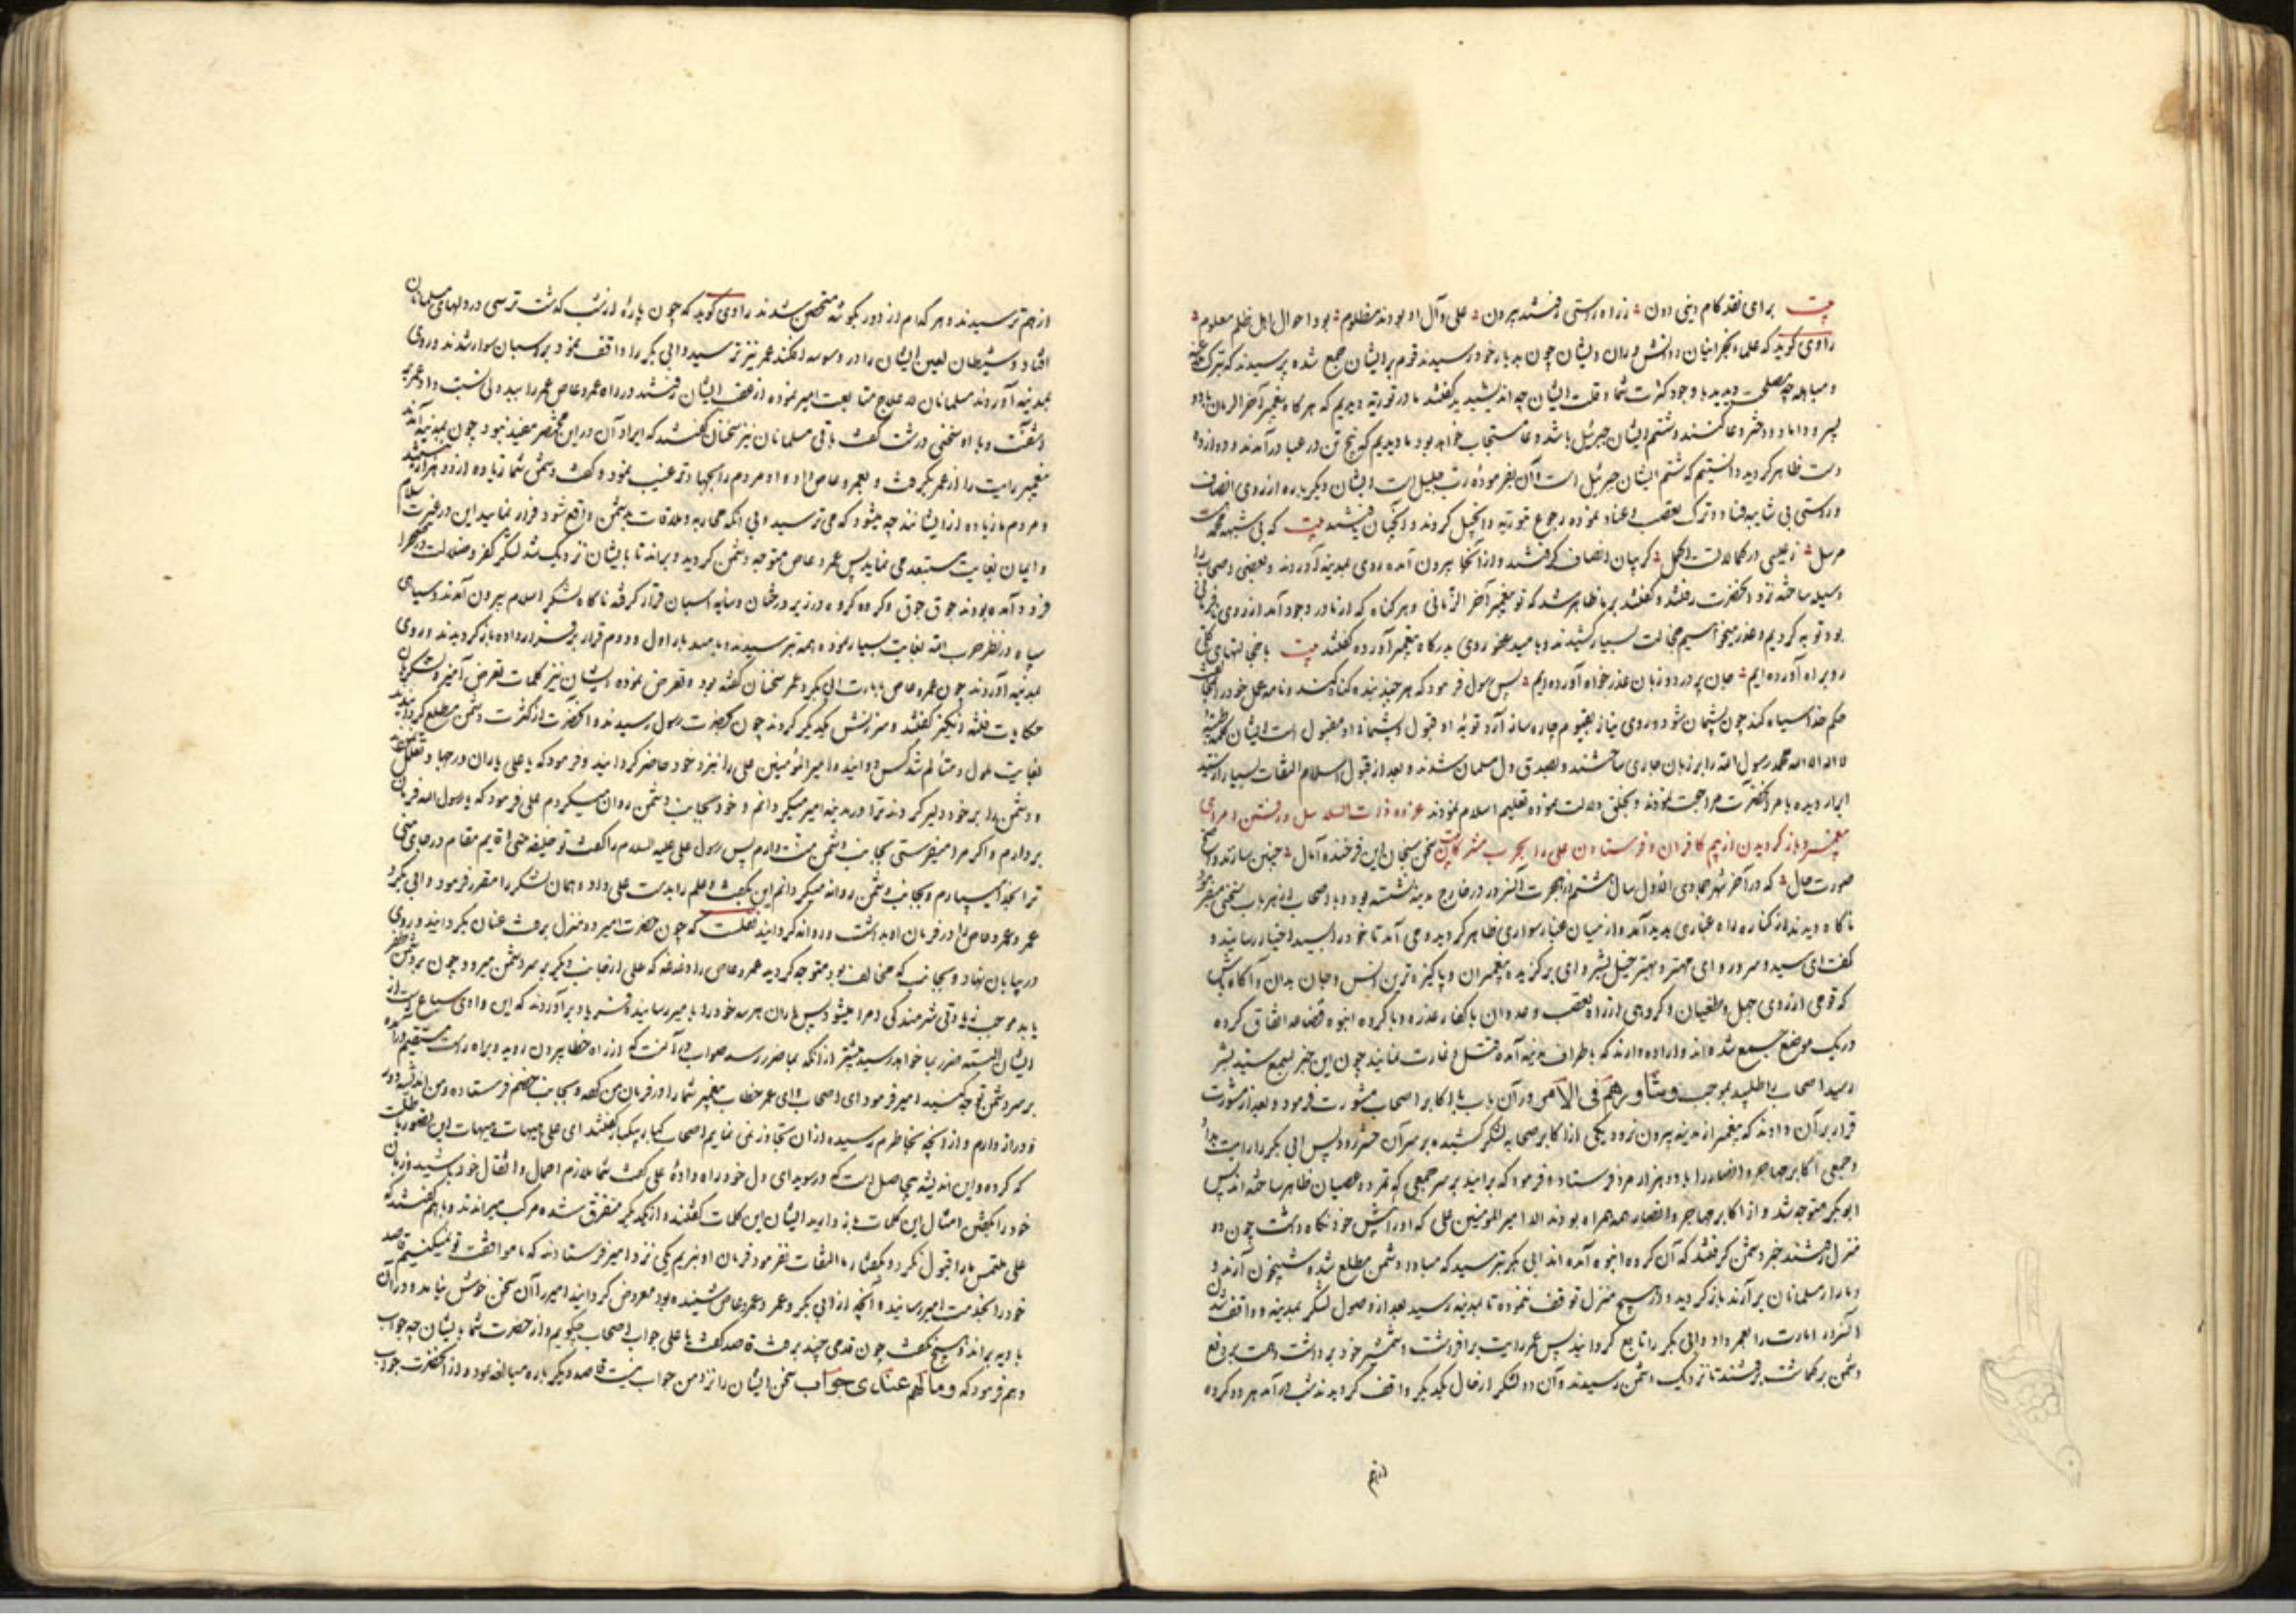 بیت برای نقد کام دینی دون ز راه راستی رفتند بیرون علی و آل او بودند مظلوم بود احوال اهل ظلم معلوم
راوی گوید که علماء نجرانیان و دانش وران ایشان چون بدیار خود رسیدند قوم بر ایشان جمع شده پرسیدند که
و مباهله چه مصلحت دیدید با وجود کثرت شما و قلت ایشان چه اندیشیدید گفتند ما در توریة دیدیم که هر گاه پیغمبر آخر الزمان با دو
پسر و داماد و دختر دعا کنند و ششم ایشان جبرئیل باشد دعا مستجاب خواهد بود ما دیدیم که پنج تن در عبا درآمدند و دوازده
دست ظاهر گردید دانستیم که ششم ایشان جبرئیل است و آن بفرموده رب جلیل است ایشان دیگر باره از روی انصاف
و راستی بی شایبه فساد و ترک تعصب و عناد نموده رجوع بتوریة و انجیل کردند و در آنجا یافتند بیت که بی شبهه محمد
مرسل ز عیسی در کمالات اکمل گریبان انصاف گرفتند و از آنجا بیرون آمده روی بمدینه آوردند و بعضی اصحاب را
وسیله ساخته نزد آنحضرت رفتند و گفتند بر ما ظاهر شد که تو پیغمبر آخر الزمانی و هر گناه که از ما در وجود آمد از روی نادانی
بود توبه کردیم و عذر میخواهیم خجالت بسیار کشیدند و بامید عفو روی بدرگاه پیغمبر آورده گفتند بیت با خجالتهای
رو براه آورده ایم جان پر درد و زبان عذر خواه آورده ایم پس رسول فرمود که هر چند بنده گناه کند و نامه عمل خود را
حکم خدا سیاه کند چون پشیمان شود و روی نیاز بقیوم چاره ساز آرد توبه او قبول و پشیمانی او مقبول است ایشان کلمه طیبه
لا اله الا الله محمد رسول الله را بر زبان جاری ساختند و بصدق دل مسلمان شدند و بعد از قبول اسلام التفات بسیار از سید
ابرار دیده بامر آنحضرت مراجعت نمودند و خلق دلالت نموده تعلیم اسلام نمودند غزوه ذات السلاسل و رفتن امرای
پیغمبر و باز گردیدن از بیم کافران و فرستادن علی را بحرب مشرکان سخن سنجان این فرخنده آمال چنین سازند واضح
صورت حال که در آخر شهر جمادی الاول سال هشتم از هجرت آن سرور در خارج مدینه نشسته بود و با اصحاب از هر باب سخنی میفرمود
ناگاه دیدند از کناره راه غباری پدید آمد و از میان غبار سواری ظاهر گردید و می آمد تا خود را بسید اخیار رسانید و
گفت ای سید و سرور و ای مهتر و بهتر خیل بشر و ای برگزیده پیغمبران و پاکیزه ترین انس و جان بدان و آگاه باش
که قومی از روی جهل و طغیان و گروهی از راه تعصب و عدوان با کفار عذره و با گروه انبوه قضاعه اتفاق کرده
در یک موضع جمع شده اند و اراده دارند که باطراف مدینه آمده قتل و غارت نمایند چون این خبر بسمع سید بشر
رسید اصحاب را طلبید بموجب و شاورهم فی الامر در آن باب با اکابر اصحاب مشورت فرمود و بعد از مشورت
قرار بر آن دادند که پیغمبر از مدینه بیرون نرود و یکی از اکابر صحابه لشکر کشیده بر سر آن حشر رود پس ابی بکر را رایت داد
و جمعی اکابر مهاجر و انصار را با دو هزار مرد فرستاده فرمود که برانید بر سر جمعی که تمرد و عصیان ظاهر ساخته اند پس
ابو بکر متوجه شد و از اکابر مهاجر و انصار همه همراه بودند الا امیر المؤمنین علی که او را پیش خود نگاه داشت چون دو
منزل رفتند خبر دشمن گرفتند که آن گروه انبوه آمده اند ابی بکر بترسید که مبادا دشمن مطلع شده شبیخون آرند و
دمار از مسلمانان بر آرند باز گردید و در هیچ منزل توقف ننموده تا بمدینه رسید بعد از وصول لشکر بمدینه و واقف شدن
آنسرور امارت را بعمر داد و ابی بکر را تابع گردانید پس عمر رایت برافراشت و شمشیر خود برداشت و همت بر دفع
دشمن بر گماشت برفتند تا نزدیک دشمن رسیدند و آن دو لشکر از حال یکدیگر واقف گردیدند شب درآمد هر دو گروه
از هم ترسیدند و هر کدام از دور بگوشه متحصن شدند راوی گوید که چون پاره از شب گذشت ترسی در دلهای مسلمانان
افتاد و شیطان لعین ایشان را در وسوسه افکند عمر نیز ترسید و ابی بکر را واقف نمود بر اسبان سوار شدند و روی
بمدینه آوردند مسلمانان لا علاج متابعت امیر نموده از عقب ایشان رفتند در راه عمرو عاص عمر را بیددلی نسبت داد عمر بر
آشفت و با او سخنی درشت گفت باقی مسلمانان نیز سخنان گفتند که ایراد آن در این مختصر مفید نبود چون بمدینه آمدند
پیغمبر رایت را از عمر گرفت و بعمرو عاص داد و او مردم را بجهاد ترغیب نمود و گفت دشمن شما زیاده از دو هزار نیستند
و مردم ما زیاده از ایشانند چه میشود که می ترسید و بی آنکه محاربه و ملاقات با دشمن واقع شود فرار نمایید این در غیرت اسلام
و ایمان بغایت مستبعد می نماید پس عمرو عاص متوجه دشمن گردید و براند تا بایشان نزدیک شد لشکر کفر و ضلالت در صحرا
فرود آمده بودند جوق جوق و گروه گروه در زیر درختان و سایه اسبان قرار گرفته ناگاه لشکر اسلام بیرون آمدند و سیاهی
سپاه در نظر حزب الله بغایت بسیار نموده همه بترسیدند و مانند بار اول و دوم قرار بر فرار داده باز گردیدند و روی
بمدینه آوردند چون عمرو عاص بامارت ابی بکر و عمر سخنان گفته بود و تعرض نموده ایشان نیز کلمات تعرض آمیز و لشکریان
حکایات فتنه انگیز گفتند و سرزنش یکدیگر کردند چون بحضرت رسول رسیدند و آنحضرت از کثرت دشمن مطلع گردانید
بغایت ملول و متألم شد کس دوانید و امیر المؤمنین علی را نزد خود حاضر گردانید و فرمود که یا علی یاران در جهاد تعلل
و دشمن را بر خود دلیر کردند ترا در مدینه امیر میگردانم و خود بجانب دشمن روان میگردم علی فرمود که یا رسول الله فرمان
بردارم و اگر مرا میفرستی بجانب دشمن منت دارم پس رسول علی علیه السلام را گفت تو خلیفه منی قایم مقام در جای منی
ترا بخدا میسپارم و بجانب دشمن روانه میگردانم این بگفت و علم را بدست علی داد و همان لشکر را مقرر فرمود و ابی بکر و
عمر و عمرو عاص را در فرمان او بداشت و روانه گردانید نقلست که چون حضرت امیر دو منزل برفت عنان بگردانید و روی
در بیابان نهاد و بجانب که مخالف بود متوجه گردید عمرو عاص را دغدغه که علی از جانب دیگر بر سر دشمن میرود و چون بر دشمن ظفر
یابد موجب زیادتی شرمندگی امرا میشود پس یاران هر سه خود را با میر رسانید فریاد برآوردند که این وادی سباع است از
ایشان البته ضرر بما خواهد رسید پیشتر از آنکه بما ضرر رسد صواب در آنست که از راه خطا بیرون روید و براه راست مستقیم درآمده
بر سر دشمن توجه کنید امیر فرمود ای اصحاب و ای عمر خطاب پیغمبر شما را در فرمان من کرده و بجانب خصم فرستاده و من اندیشه
دور و دراز دارم و از آنچه بخاطرم رسیده از آن تجاوز نمی نمایم اصحاب گفتند ای علی هیهات هیهات این تصور باطلست
که کرده و این اندیشه بیحاصل است که در سویدای دل خود راه داده علی گفت شما ملازم احمال و اثقال خود باشید و زبان
خود را بگفتن امثال این کلمات باز دارید ایشان این کلمات گفتند و از یکدیگر متفرق شده مرکب میراندند و با هم گفتند که
علی ملتمس ما را قبول نکرد و بگفتار ما التفات نفرمود فرمان او نبریم یکی نزد امیر فرستادند که ما موافقت تو نمیکنیم قاصد
خود را بخدمت امیر رسانید و آنچه از ابی بکر و عمر و عمرو عاص شنیده بود معروض گردانید امیر را آن سخن خوش نیامد و در آن
بادیه براند و هیچ نگفت چون قدمی چند برفت قاصد گفت یا علی جواب اصحاب چگویم و از حضرت شما بایشان چه جواب
دهم فرمود که و مالهم عندی جواب سخن ایشان را نزد من جواب نیست قاصد دیگر باره مبالغه نمود و از آنحضرت جواب